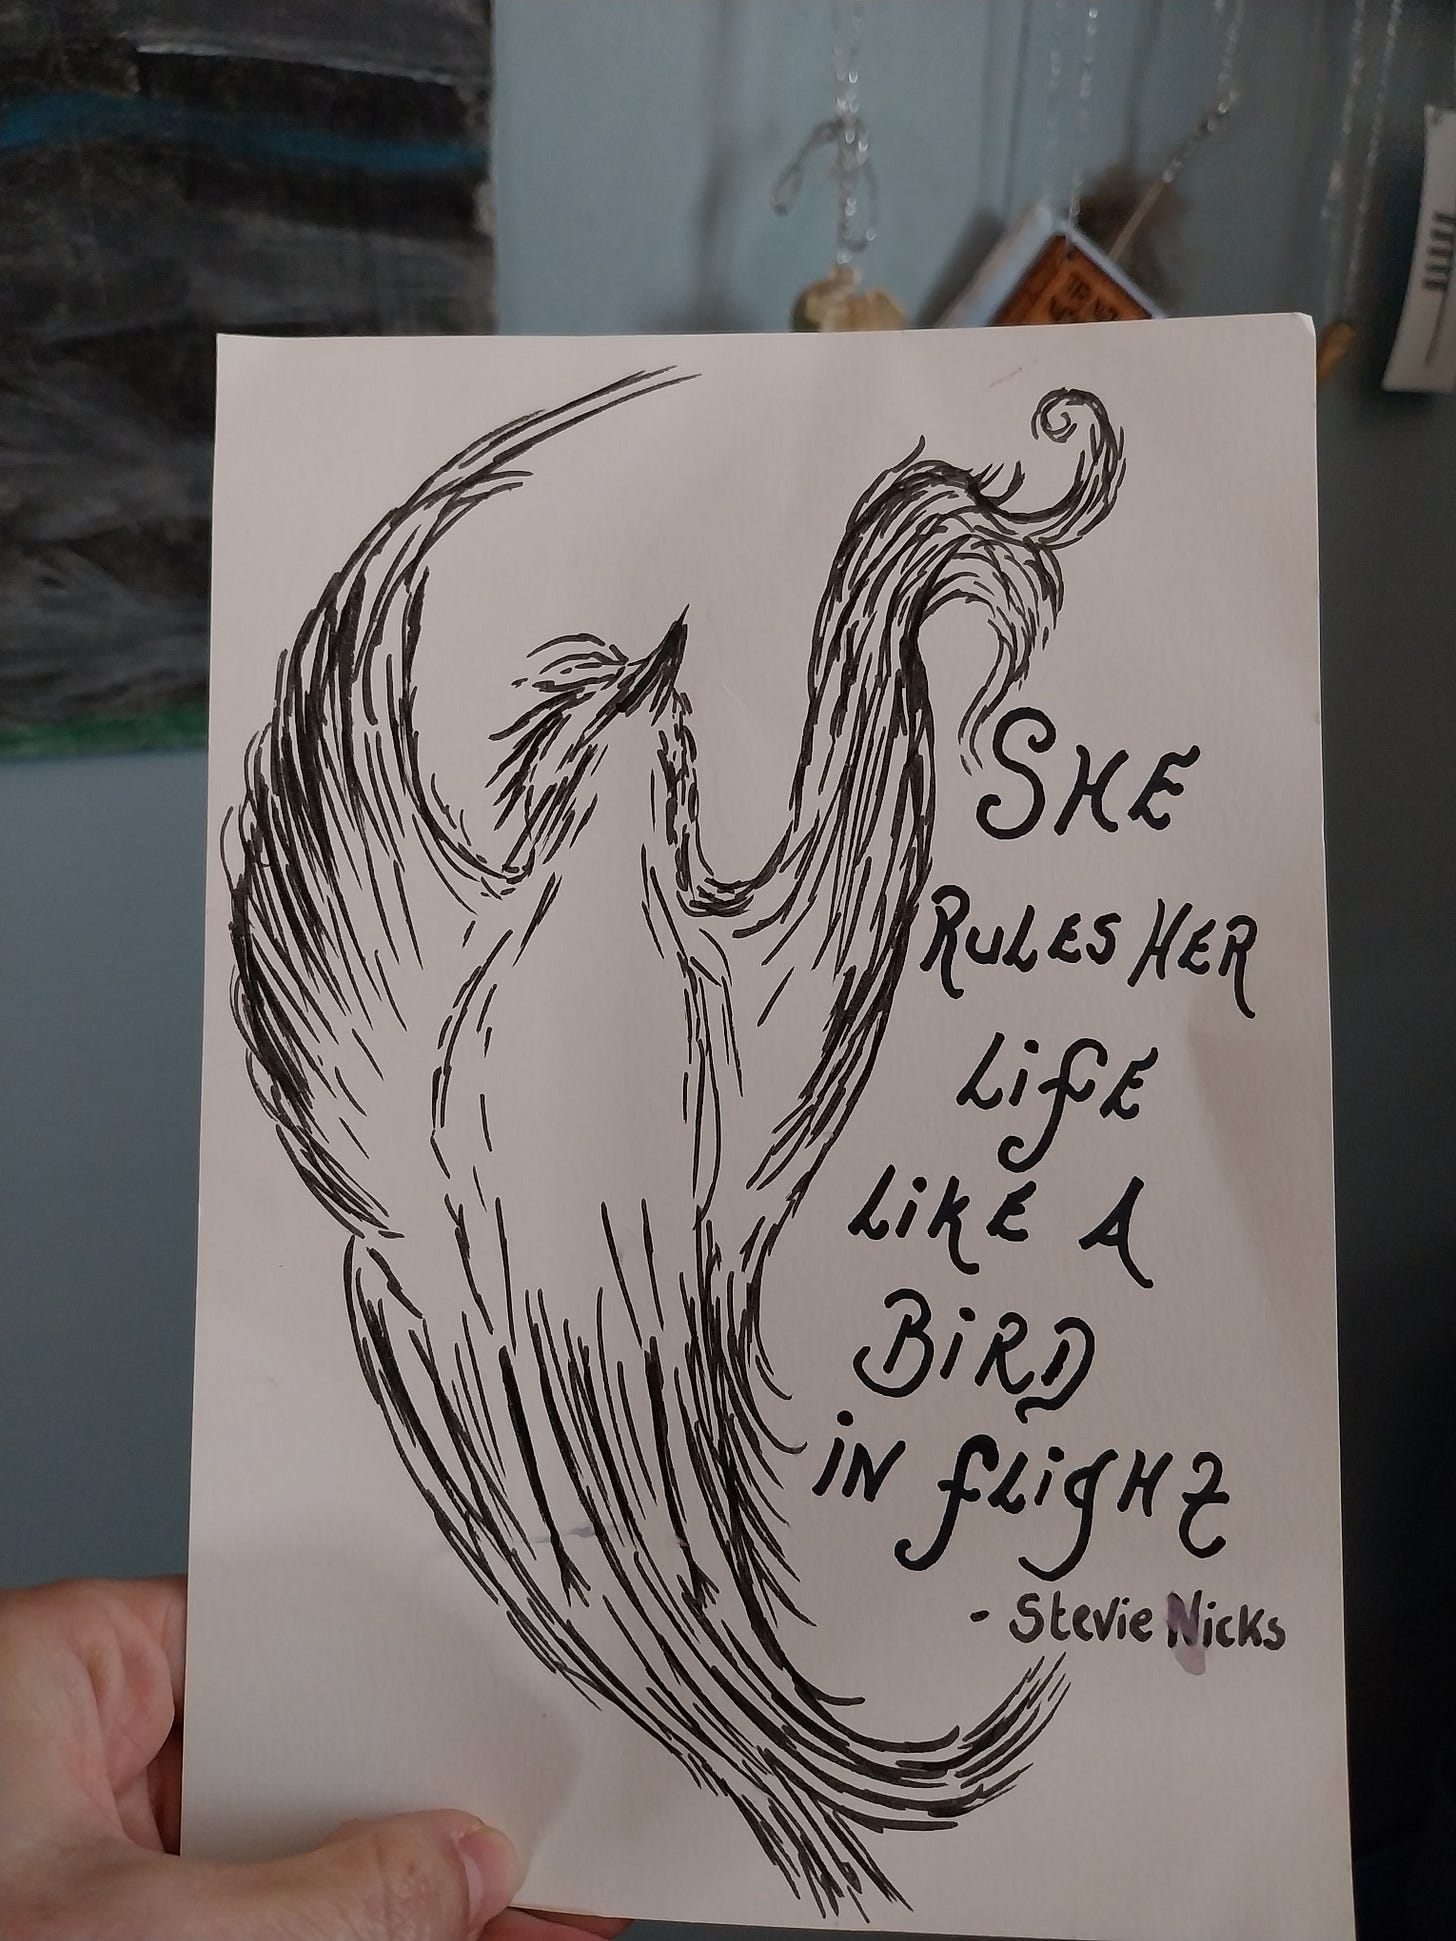 SHE
RULES HER
LifE
LiKE A
BiRD
iN fLigHt
- Stevie Nicks